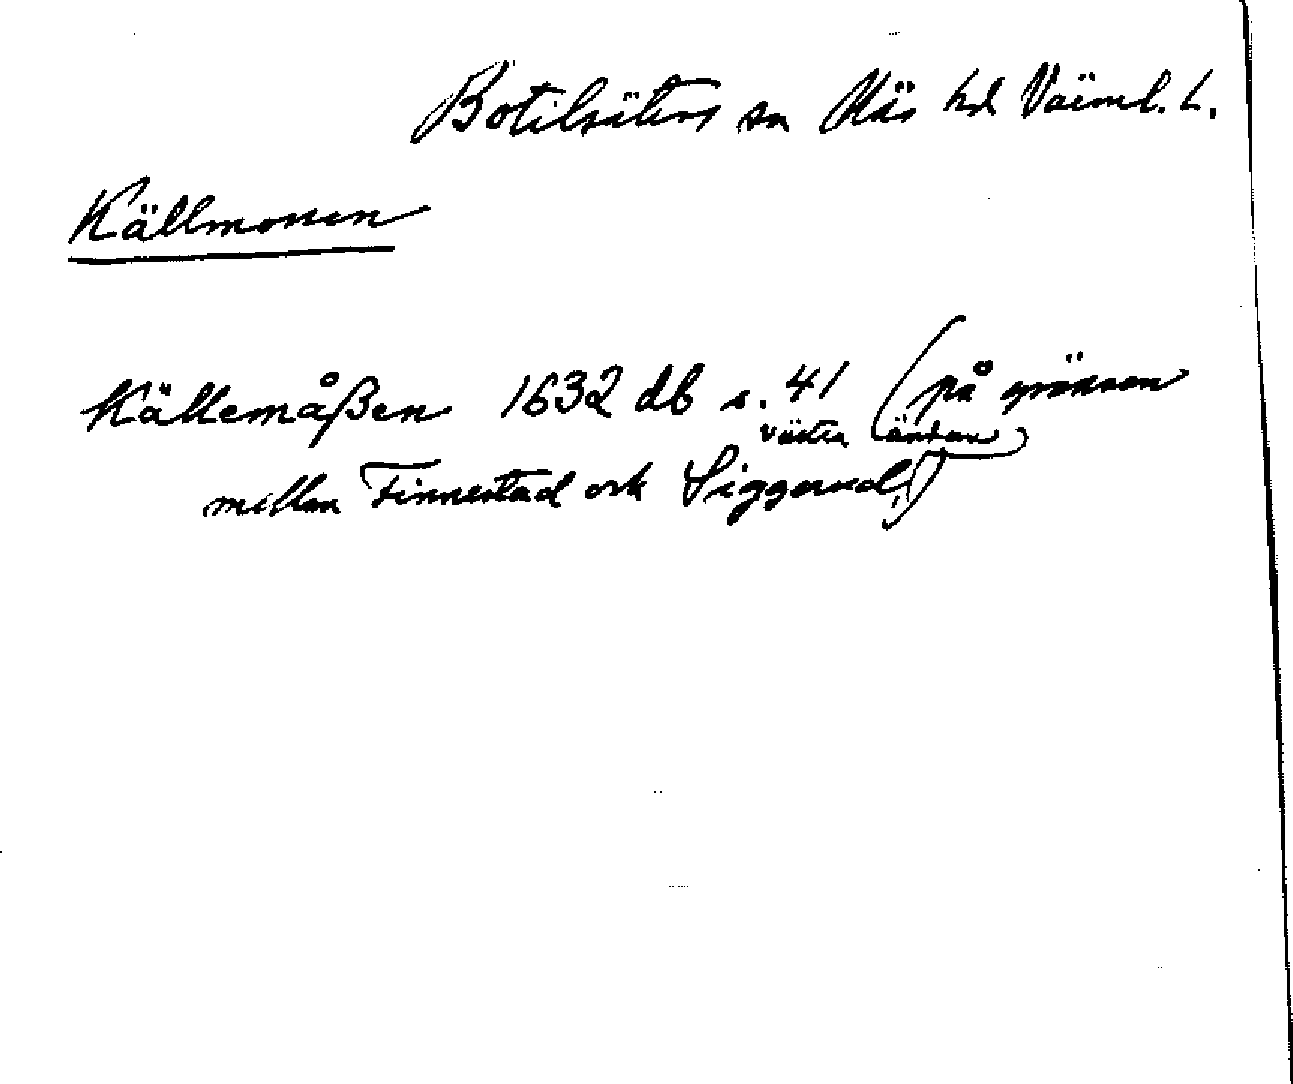 Botilsäters sn Näs hd Värml. L.
Källmossen
Källemåßen 1632 db s. 41 (på gränsen
västra ändan
mellan Finnestad ock Siggerud)